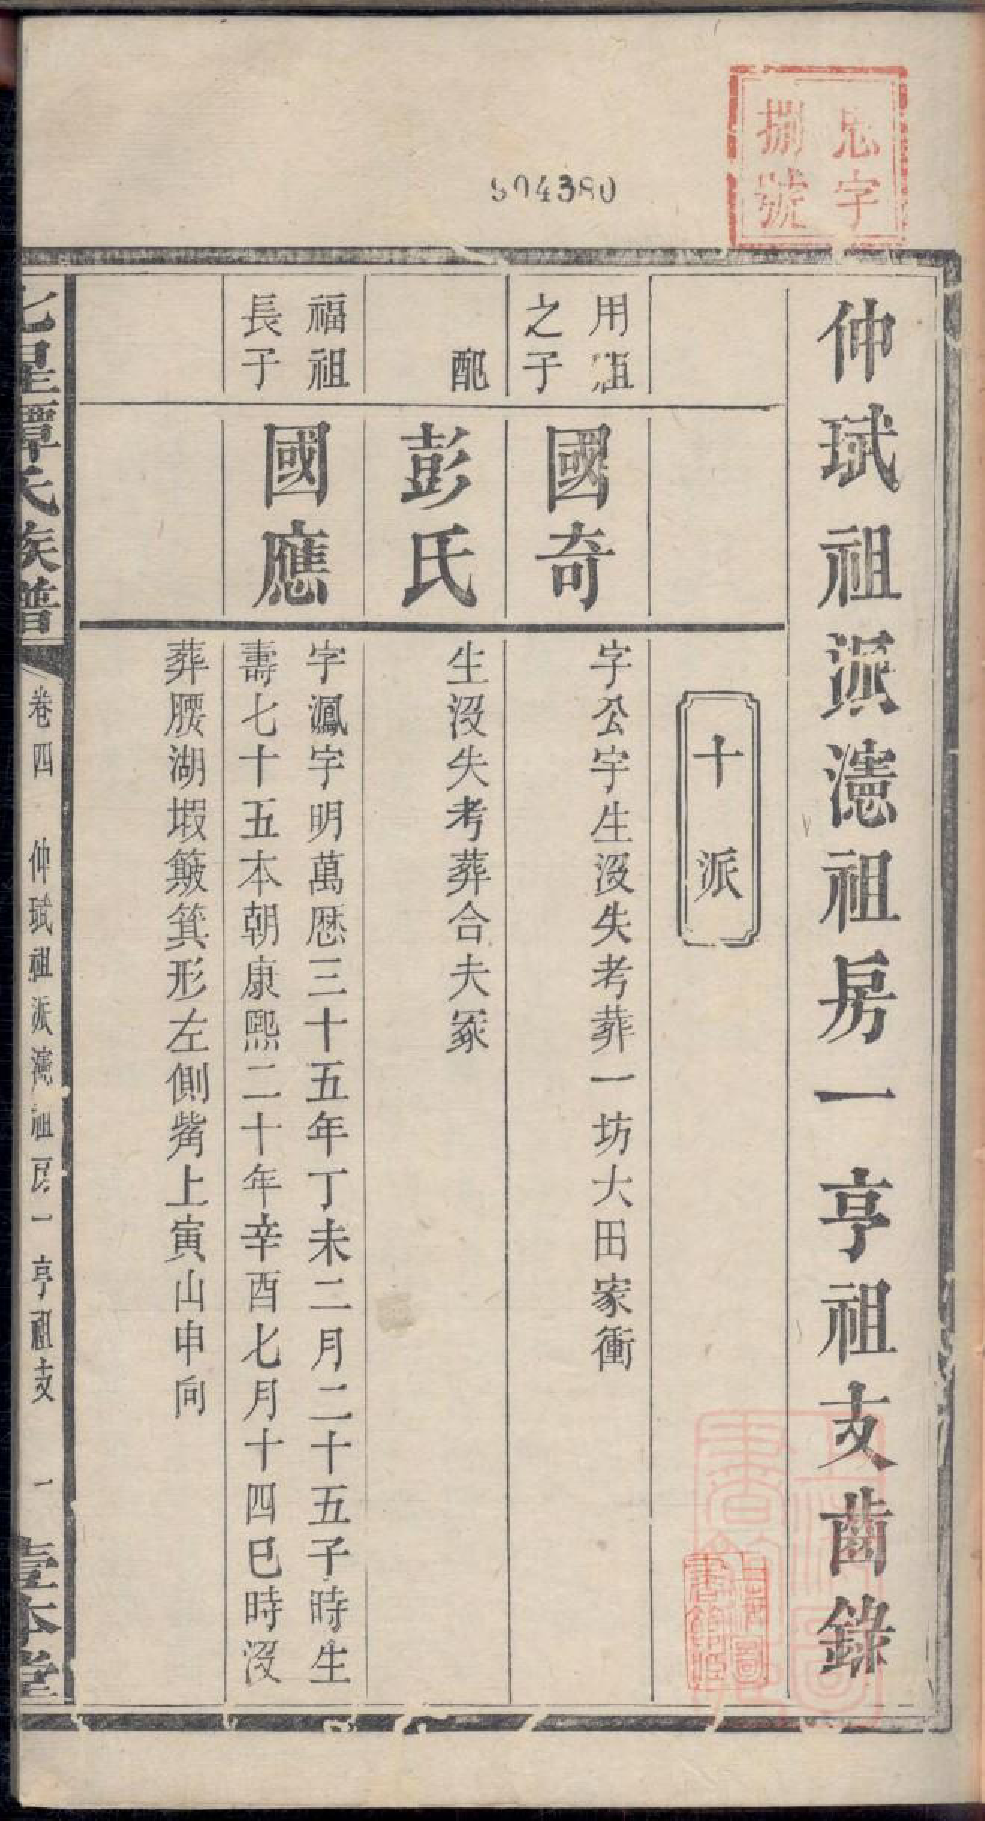 忠字
捌號
904380
仲珷祖派濾祖房一亨祖支齒錄
十派
用祖
之子
國奇
字公字生沒失考葬一坊大田家衝
配
彭氏
生沒失考葬合夫冢
福祖
長子
國應
字鳳字明萬歷三十五年丁未二月二十五子時生
壽七十五本朝康熙二十年辛酉七月十四巳時沒
葬腰湖塅簸箕形左側嘴上寅山申向
七星譚氏族譜
卷四
仲珷祖派濾祖房一亨祖支
一
壹本堂